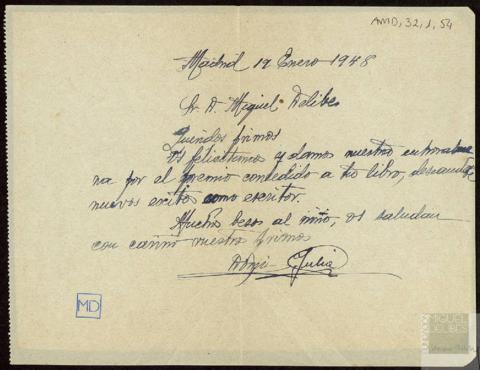 AMD, 32, 1, 54
Madrid 12 Enero 1948
Sr. D. Miguel Delibes
Queridos primos
Os felicitamos y damos nuestra enhorabue
na por el premio concedido a tu libro, deseando
nuevos exitos como escritor.
Muchos besos al niño, os saludan
con cariño vuestros primos
Julia
MD
FUNDACIÓN
MIGUEL
DELIBES